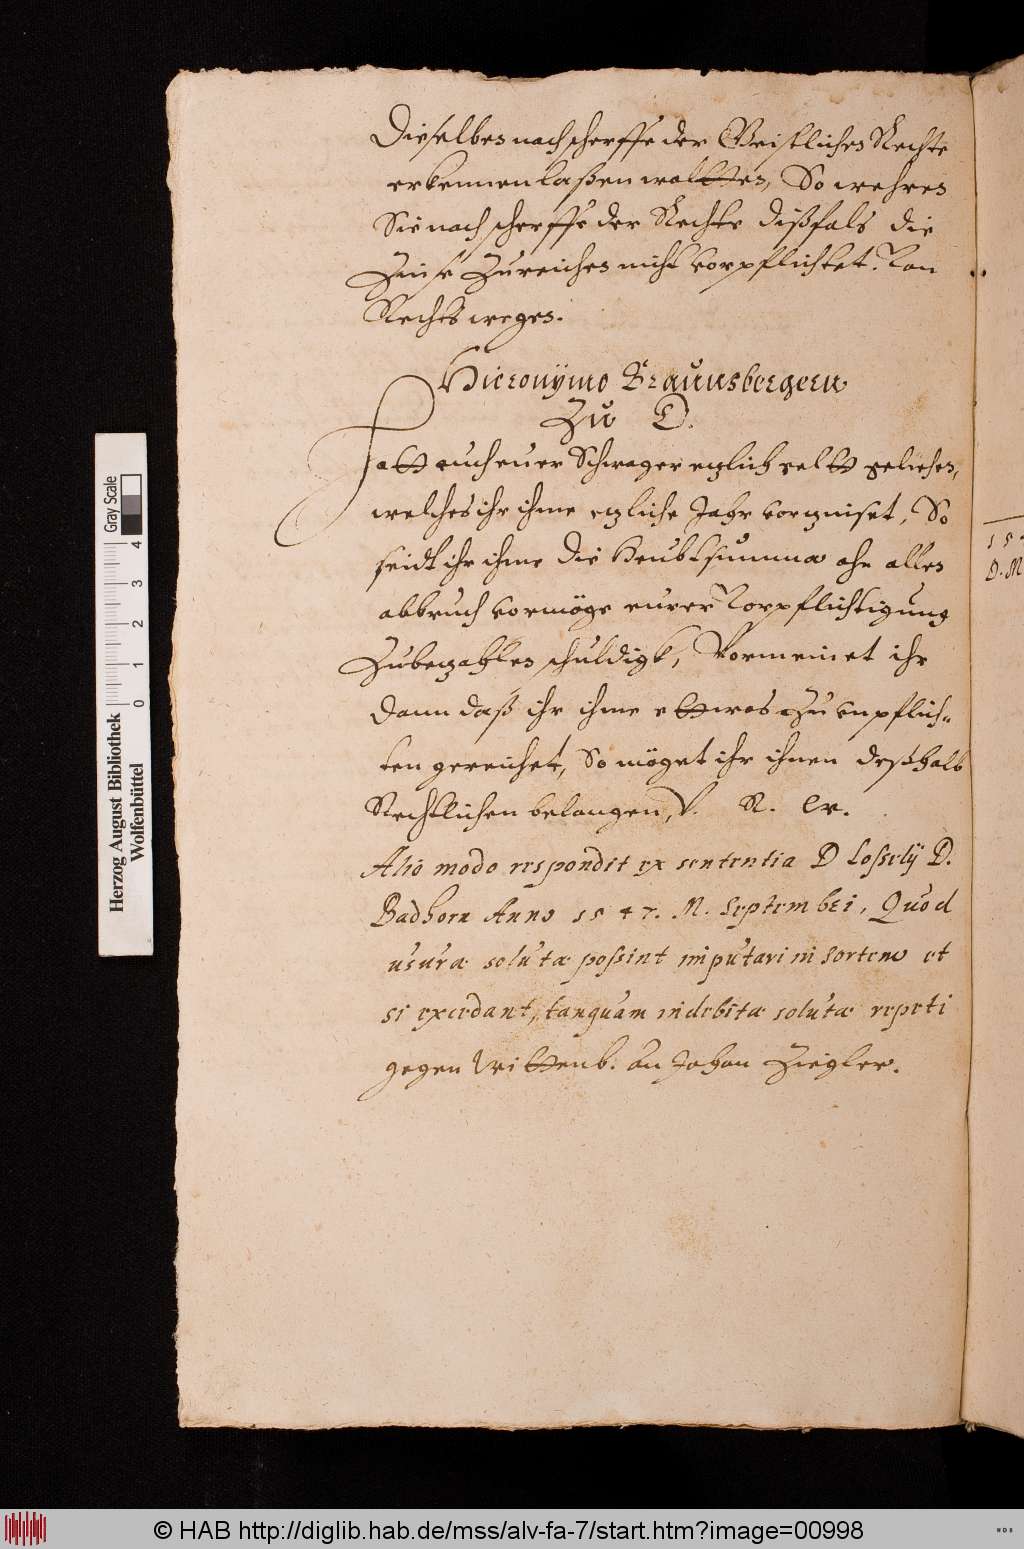 Dieselben nach scherffe der Geistlichen Rechte
erkennen laßen woltten, So wehren
Sie nach scherffe der Rechte dißfals die
Zinse Zureichen nicht vorpflichtet. Von
Rechts wegen.
Hieronÿmo Braunsbergern
Zu D.
Hatt euch euer Schwager etzlich geltt geliehen,
welches ihr ihme etzliche Jahr vorzinset, So
seidt ihr ihme die Heubtsumma ohn alles
abbruch vormöge eurer Vorpflichtigung
Zubezahlen schuldigk, Vormeinet ihr
dann daß ihr ihme ettwas Zu unpflich-
ten gereichet, So möget ihr ihnen deßhalb
Rechtlichen belangen, V. R. W.
Alio modo respondit ex sententia D Loßelÿ D.
Badhorn Anno 1547. M. Septembri, Quod
usura soluta poßint imputari in sortem et
si excedant, tanquam indebita soluta repeti
gegen Wittenb. an Johan Ziegler.
15
D. M
Gray Scale
4
3
2
1
0
Herzog August Bibliothek
Wolfenbüttel
© HAB http://diglib.hab.de/mss/alv-fa-7/start.htm?image=00998